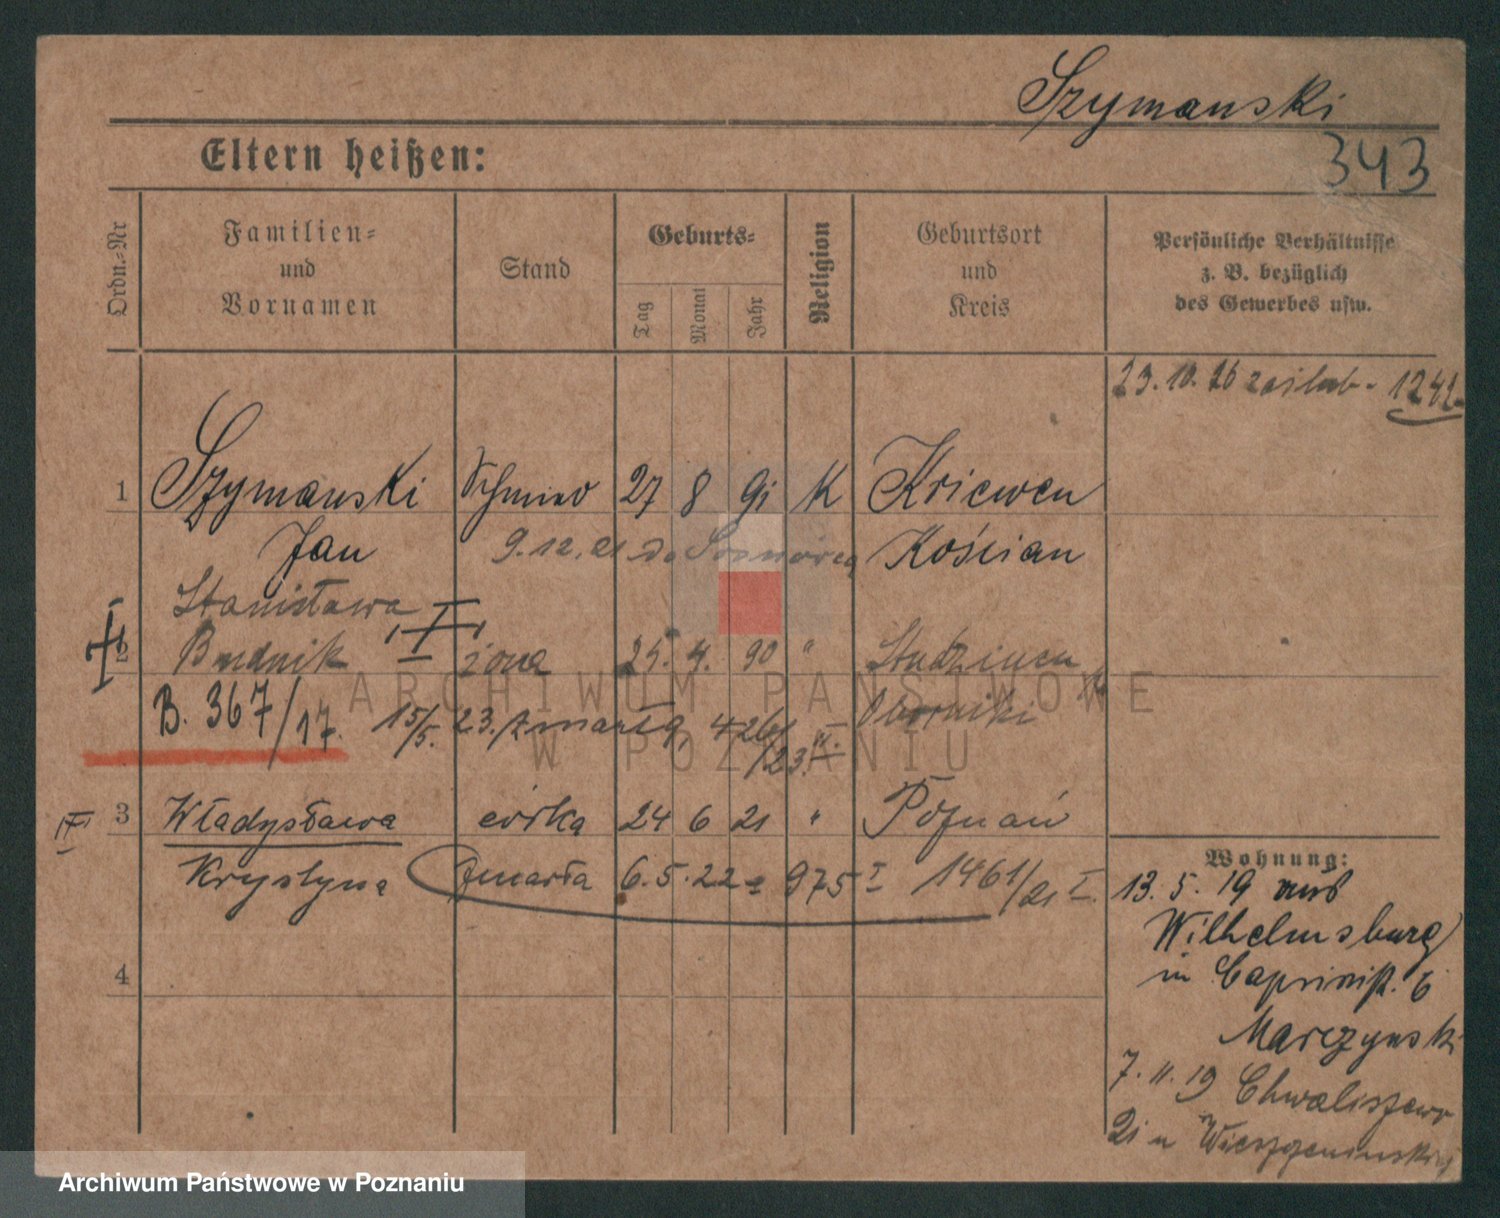 Szymanski
343
Eltern heißen:
Ordn.-Nr
Familien-
und
Vornamen
Stand
Geburts-
Tag
Monat
Jahr
Religion
Geburtsort
und
Kreis
Persönliche Verhältnisse
z. B. bezüglich
des Gewerbes usw.
23. 10. 26 1242
1 Szymanski Schmied 27 8 91 K Kriewen
Jan 9. 12. 21 do Kościan
Stanisława
2 Budnik żona 25. 4. 90 "
Oborniki
B. 367/17. 15/5. 23. zmarła, 426/23. II.
3 Władysława córka 24 6 21 " Poznań
Krystyna zmarła 6. 5. 22 975 I 1461/21 I.
4
Wohnung:
13. 5. 19 aus
Wilhelmsburg
in 6
Marczynski
7. 11. 19 Chwaliszewo
21 u
ARCHIWUM PAŃSTWOWE
W POZNANIU
Archiwum Państwowe w Poznaniu